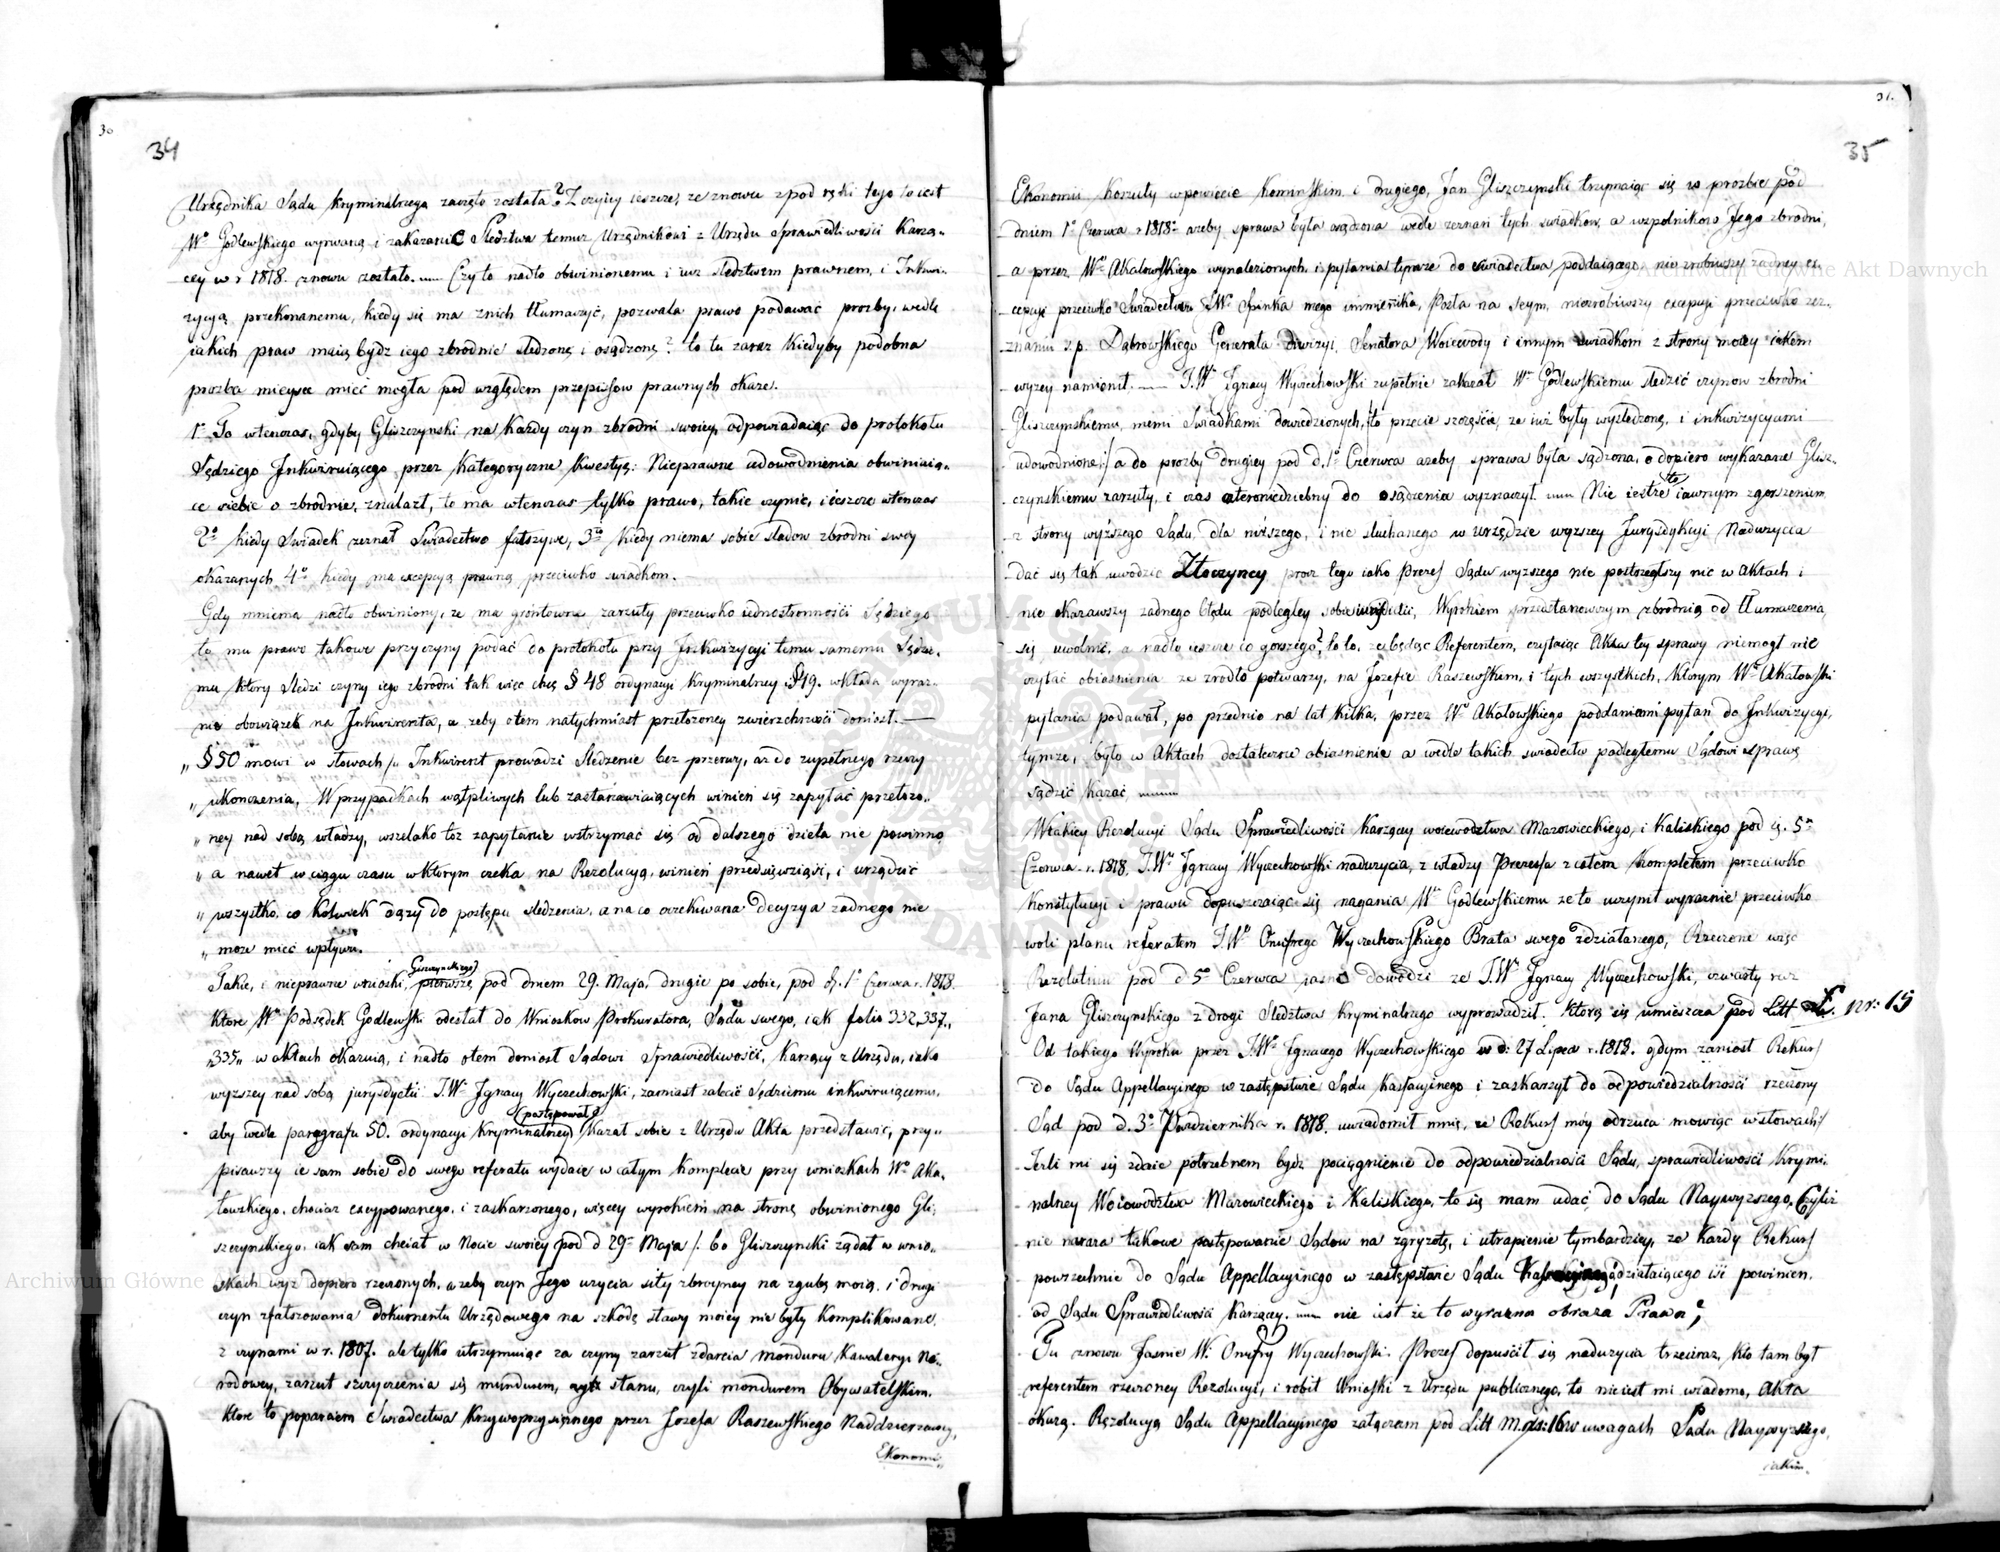 30
34
Urzędnika Sądu Kryminalnego zaczęło została? Z czyiey ieszcze, ze znowu z pod ręki tego to iest
Wo Godlewskiego wyrwaną i zakazanie Sledztwa temuz Urzędnikowi z Urzędu Sprawiedliwosci Karzą-
cey w r 1818. znowu zostało. — Czy to nadto obwinionemu i iuz sledztwem prawnem, i Inkwi-
zycyą przekonanemu, kiedy się ma z nich tłumaczyć, pozwala prawo podawać prozby, wedle
iakich praw maią bydz iego zbrodnie sledzone i osądzone? to tu zaraz kiedyby podobna
prozba mieysce mieć mogła pod względem przepisow prawnych okaże.
1o To wtenczas, gdyby Gliszczynski na każdy czyn zbrodni swoiey, odpowiadaiąc do protokołu
Sędziego Inkwiruiącego, przez kategoryczne kwestye: Nieprawne udowodnienia obwiniaią-
ce siebie o zbrodnie, znalazł, to ma wtenczas tylko prawo, takie czynić, i ieszcze wtenczas
2o kiedy Swiadek zeznał Swiadectwo fałszywe, 3o kiedy niema sobie sladow zbrodni swey
okazanych 4o kiedy ma excepcyą prawną przeciwko swiadkom.
Gdy mniema nadto obwiniony, ze ma grontowne zarzuty przeciwko iednostronnosci Sędziego
to mu prawo takowe przyczyny podać do protokołu przy Inkwizycyi temu samemu Sędzie-
mu który sledzi czyny iego zbrodni tak więc chce § 48 ordynacyi kryminalney § 49. wkłada wyraz-
nie obowiązek na Inkwirenta, a zeby otem natychmiast przełozoney zwierzchności doniosł. —
„ § 50 mowi w słowach /: Inkwirent prowadzi sledzenie bez przerwy, az do zupełnego rzeczy
„ ukonczenia, W przypadkach wątpliwych lub zastanawiaiących winien się zapytać przełozo-
„ ney nad sobą władzy, wszelako toz zapytanie wstrzymać się od dalszego dzieła nie powinno,
„ a nawet w ciągu czasu w którym czeka na Rezolucyą, winien przedsięwziąść, i urządzić
„ wszystko, co kolwiek dązy do postępu sledzenia, a na co oczekiwana decyzya zadnego nie
„ moze mieć wpływu.
Takie, i nieprawne wnioski, pierwsze pod dniem 29. Maja, drugie po sobie, pod d. 1o Czerwca r. 1818.
ktore Wo Podsędek Godlewski odesłał do Wniosków Prokuratora, Sądu swego, iak folio 332, 337.,
„335„ w aktach okazuią, i nadto otem doniosł Sądowi Sprawiedliwości, Karzący z Urzędu, iako
wyzszey nad sobą jurysdycii J.W. Ignacy Wyczechowski, zamiast zalecić Sędziemu inkwiruiącemu,
aby wedle paragrafu 50. ordynacyi Kryminalney (postępował) kazał sobie z Urzędu Akta przedstawić, przy-
pisawszy ie sam sobie do swego referatu wydaie w całym Komplecie przy wnioskach Wo Aka-
łowskiego, chociaz excypowanego, i zaskarzonego, więcey wyrokiem na stronę obwinionego Gli-
szczynskiego, iak sam chciał w Nocie swoiey pod d 29o Maja /. bo Gliszczynski ządał w wnio-
skach wyz dopiero rzeczonych, azeby czyn Jego uzycia siły zbroyney na zgubę moią, i drugi
czyn zfałszowania dokumentu Urzędowego na szkodę sławy moiey nie były Komplikowane,
z czynami w r. 1807. ale tylko utrzymuiąc za czyny zarzut zdarcia monduru Kawaleryi Na-
rodowey, zarzut szczycenia się mundurem, stanu, czyli mondurem Obywatelskim,
ktore to poparciem Swiadectwa Krzywoprzysięznego przez Jozefa Raszewskiego Naddzierzawcę,
Ekonomi„
31.
35
Ekonomii Koszuty w powiecie Koninskim. i drugiego, Jan Gliszczynski trzymaiąc się w prozbie pod
dniem 1o Czerwca r 1818o azeby sprawa była sądzona wedle zeznań tych swiadków, a wspolnikow Jego zbrodni,
a przez Wo Akałowskiego wynalezionych, i pytania tymze do swiadectwa poddaiącego, nie zrobiwszy zadney ex-
cepcyi przeciwko Swiadectwu JWo Spinka mego imiennika, Posła na Seym, niezrobiwszy excepcyi przeciwko zez-
znaniu s.p. Dąbrowskiego Generała dywizyi, Senatora Woiewody i innym swiadkom z strony moiey iakem
wyzey namienił. — J.W. Ignacy Wyczechowski zupełnie zakazał Wo Godlewskiemu sledzić czynow zbrodni
Gliszczynskiemu, memi Swiadkami dowiedzionych, /to przecie szczęście, ze iuz były wysledzone, i inkwizycyami
udowodnione:/ a do prozby drugiey pod d. 1o Czerwca azeby sprawa była sądzona, o dopiero wykazane Glisz-
czynskiemu zarzuty, i czas czteroniedzielny do osądzenia wyznaczył. — Nie iestze to iawnym zgorszeniem
z strony wyższego Sądu, dla niższego, i nie słuchanego w urzędzie wyzszey Jurysdykcyi Naduzycia
dać się tak uwodzić Złoczyncy, przez tego iako Prezes Sądu wyzszego nie postrzegłszy nic w Aktach i
nie okazawszy zadnego błędu podległey sobie jurysdicii, Wyrokiem przedstanowczym zbrodnią od tłumaczenia
się, uwolnić, a nadto ieszcze co gorszego?, to to, ze będąc Referentem, czytaiąc Akta tey sprawy niemogł nie
czytać obiasnienia ze zrodło potwarzy, na Jozefie Raszewskim, i tych wszystkich, którym Wo Akałowski
pytania podawał, po przednio na lat kilka, przez Wo Akałowskiego poddaniem pytań do Inkwizycyi,
tymze, było w Aktach dostateczne obiasnienie a wedle takich swiadectw podległemu Sądowi sprawę
sądzić kazać. —
W takiey Rezolucyi Sądu Sprawiedliwości Karzącey woiewodztwa Mazowieckiego, i Kaliskiego pod d. 5o
Czerwca r. 1818. J.W. Ignacy Wyczechowski naduzycia, z władzy Prezesa z całem kompletem przeciwko
Konstytucyi i prawu dopuszczaiąc się nagania Wo Godlewskiemu ze to uczynił wyraznie przeciwko
woli planu referatem J.Wo Onufrego Wyczechowskiego Brata swego zdziałanego, Rzeczone więc
Rezolutum pod d 5o Czerwca jasno dowodzi ze J.W. Ignacy Wyczechowski, czwarty raz
Jana Gliszczynskiego z drogi sledztwa Kryminalnego wyprowadził. Którą się umieszcza pod Litt L. nr: 15
Od takiego Wyroku przez J.Wo Ignacego Wyczechowskiego w d: 27 Lipca r. 1818. gdym zaniosł Rekurs
do Sądu Appellacyinego w zastępstwie Sądu Kassacyinego i zaskarzył do odpowiedzialności rzeczony
Sąd pod d. 3o Pazdziernika r. 1818. uwiadomił mnie, ze Rekurs mój odrzuca mowiąc w słowach/
Jezli mi się zdaie potrzebnem bydz pociągnienie do odpowiedzialności Sądu, sprawiedliwości Krymi-
nalney Woiewodztwa Mazowieckiego i Kaliskiego, to się mam udać, do Sądu Naywyzszego, Czyliz
nie naraza takowe postępowanie Sądow na zgryzotę, i utrapienie tymbardziey, ze kazdy Rekurs
powszechnie do Sądu Appellacyinego w zastępstwie Sądu działaiącego isc powinien,
od Sądu Sprawiedliwości Karzącey. — nie iest ze to wyrazna obraza Prawa?
Tu znowu Jasnie W: Onufry Wyczechowski. Prezes dopuścił się naduzycia trzeciraz, kto tam był
referentem rzeczoney Rezolucyi, i robił Wnioski z Urzędu publicznego, to nie iest mi wiadomo, Akta
okażą. Rezolucyą Sądu Appellacyinego załączam pod Litt M. nr: 16 w uwagach Sądu Naywyzszego,